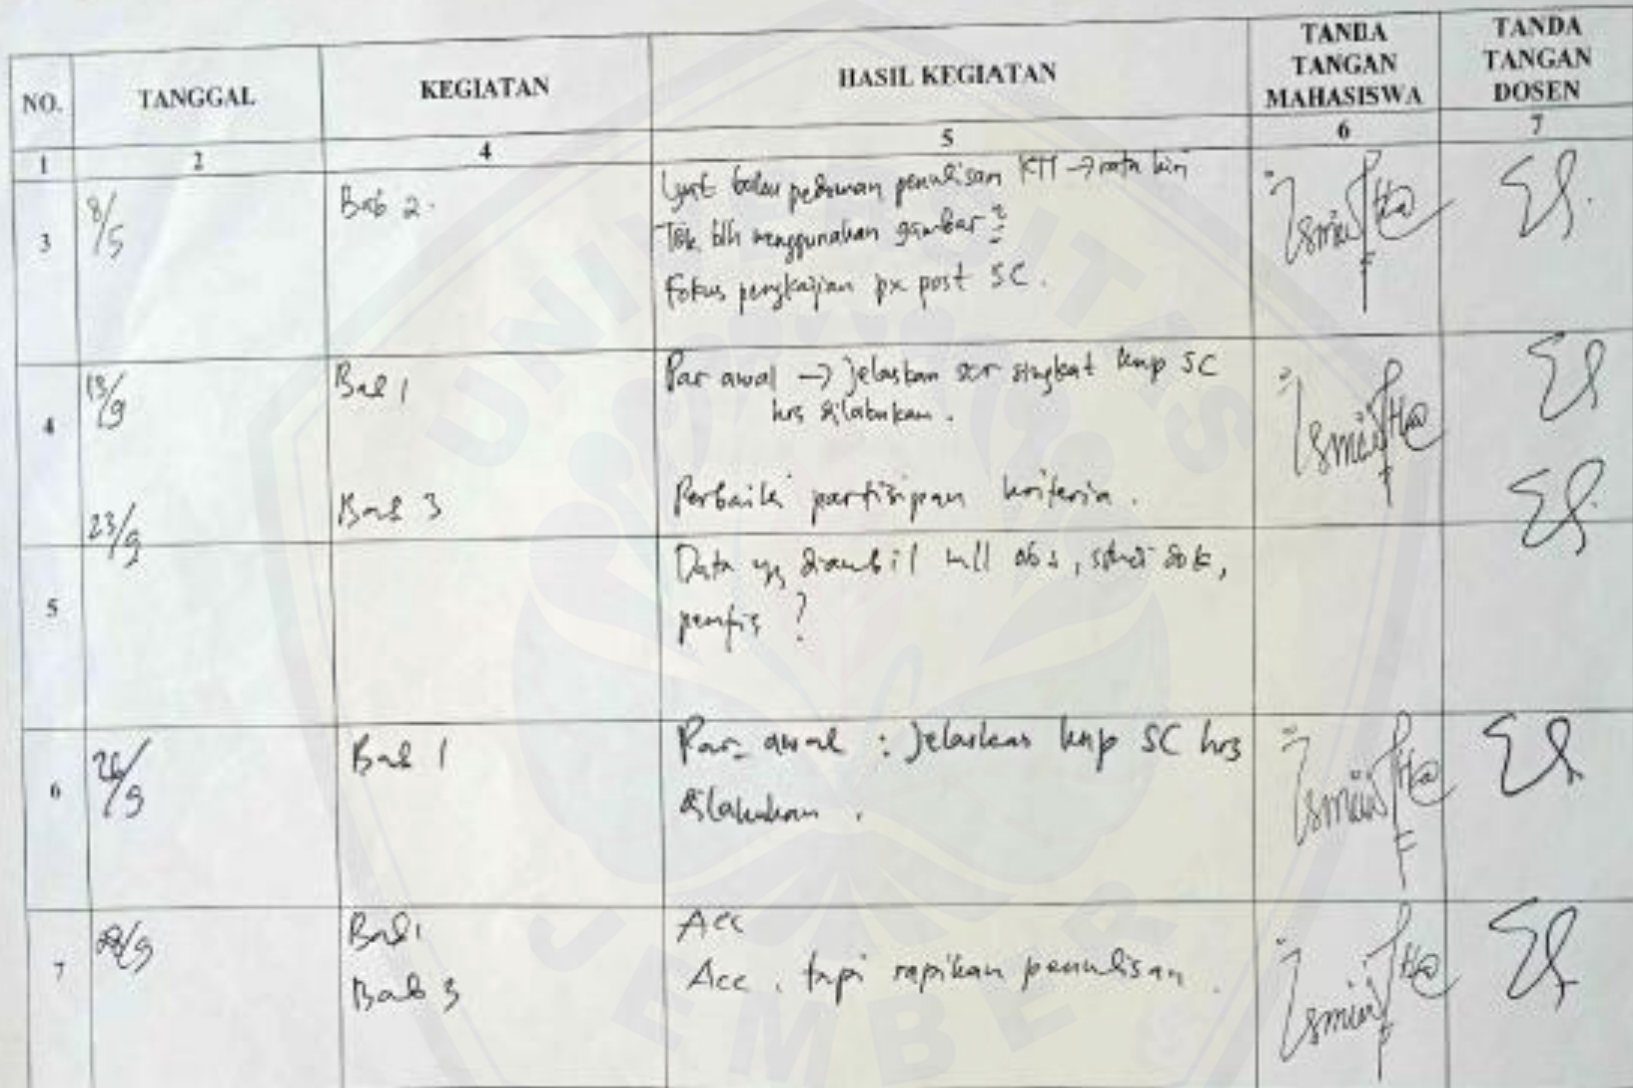 NO.
TANGGAL
KEGIATAN
HASIL KEGIATAN
TANDA
TANGAN
MAHASISWA
TANDA
TANGAN
DOSEN
1
2
4
5
6
7
3
8/5
Bab 2.
pedoman penulisan KTI → rata kiri
Tdk blh menggunakan gambar2
Fokus pengkajian px post SC.
Ismia
4
/9
Bab 1
Par awal → jelaskan scr singkat knp SC
hrs dilakukan.
Ismia
23/9
Bab 3
Perbaiki partisipan kriteria.
5
Data yg diambil mll obs, studi dok,
pemfis ?
6
26/9
Bab 1
Par. awal : Jelaskan knp SC hrs
dilakukan.
Ismia
7
/9
Bab 1
Acc
Bab 3
Acc, tapi rapikan penulisan.
Ismia
UNIVERSITAS
JEMBER